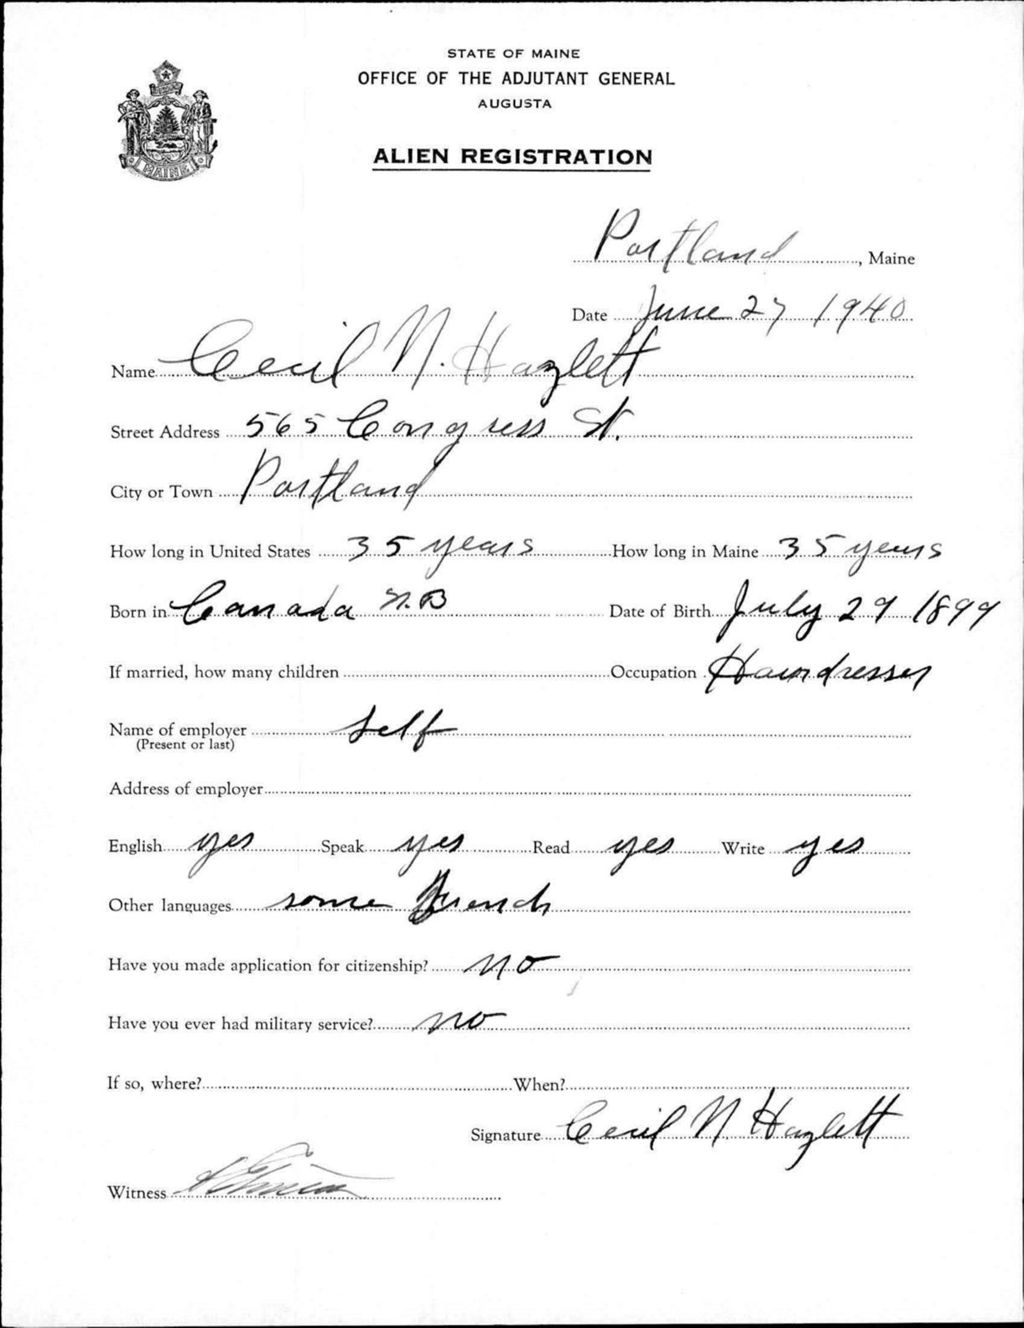 STATE OF MAINE
OFFICE OF THE ADJUTANT GENERAL
AUGUSTA
ALIEN REGISTRATION
MAINE
Portland, Maine
Date June 27 1940
Name Cecil N. Hazlett
Street Address 565 Congress St.
City or Town Portland
How long in United States 35 years How long in Maine 35 years
Born in Canada N.B Date of Birth July 29 1899
If married, how many children Occupation Hairdresser
Name of employer self
(Present or last)
Address of employer
English yes Speak yes Read yes Write yes
Other languages some French
Have you made application for citizenship? no
Have you ever had military service? no
If so, where? When?
Signature Cecil N Hazlett
Witness